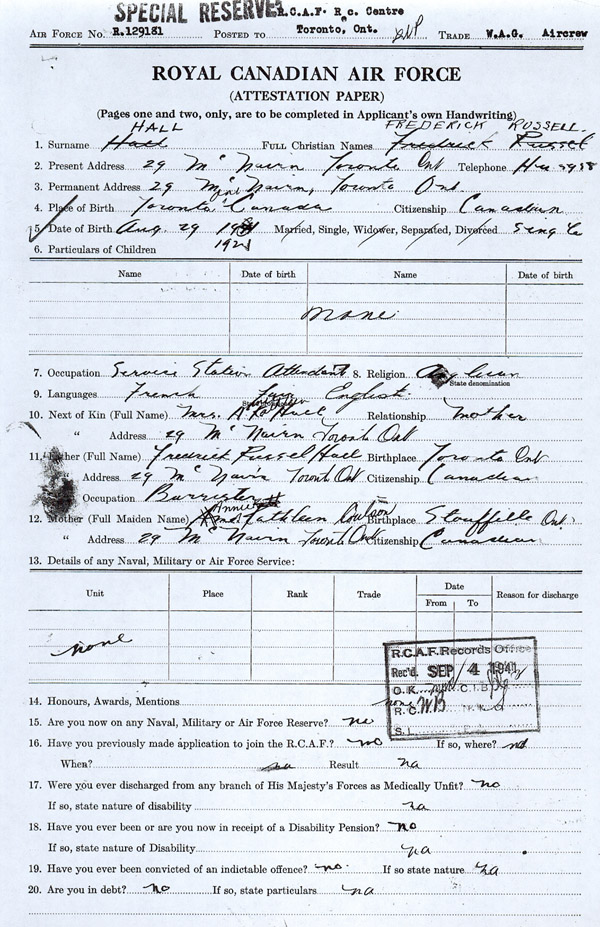 SPECIAL RESERVE
R.C.A.F. Rc. Centre
AIR FORCE No. R.129181 POSTED TO Toronto, Ont. TRADE W.A.G. Aircrew
ROYAL CANADIAN AIR FORCE
(ATTESTATION PAPER)
(Pages one and two, only, are to be completed in Applicant's own Handwriting)
HALL FREDERICK RUSSELL
1. Surname Hall FULL Christian Names Fredrick Russel
2. Present Address 29 McNairn Toronto Ont Telephone
3. Permanent Address 29 McNairn, Toronto Ont.
4. Place of Birth Toronto Canada Citizenship Canadian
5. Date of Birth Aug. 29 Married, Single, Widower, Separated, Divorced Single
1921
6. Particulars of Children
Name Date of birth Name Date of birth
none
7. Occupation Service Station Attendant 8. Religion Anglican
State denomination
9. Languages French English.
10. Next of Kin (Full Name) Mrs. Hall Relationship mother
" Address 29 McNairn Toronto Ont
11. Father (Full Name) Fredrick Russel Hall Birthplace Toronto Ont
" Address 29 McNairn Toronto Ont Citizenship Canadian
Occupation Barrister
Annie
12. Mother (Full Maiden Name) Kathleen Coulson Birthplace Stouffville Ont.
" Address 29 McNairn Toronto Ont Citizenship Canadian
13. Details of any Naval, Military or Air Force Service:
Unit Place Rank Trade Date Reason for discharge
From To
none
R.C.A.F. Records Office
Rec'd. SEP 4 1941
O.K. C.I.B.
R.C. W.B.
S.I.
14. Honours, Awards, Mentions none
15. Are you now on any Naval, Military or Air Force Reserve? no
16. Have you previously made application to join the R.C.A.F.? no If so, where? na
When? na Result na
17. Were you ever discharged from any branch of His Majesty's Forces as Medically Unfit? no
If so, state nature of disability na
18. Have you ever been or are you now in receipt of a Disability Pension? no
If so, state nature of Disability na
19. Have you ever been convicted of an indictable offence? no. If so state nature na
20. Are you in debt? no If so, state particulars na